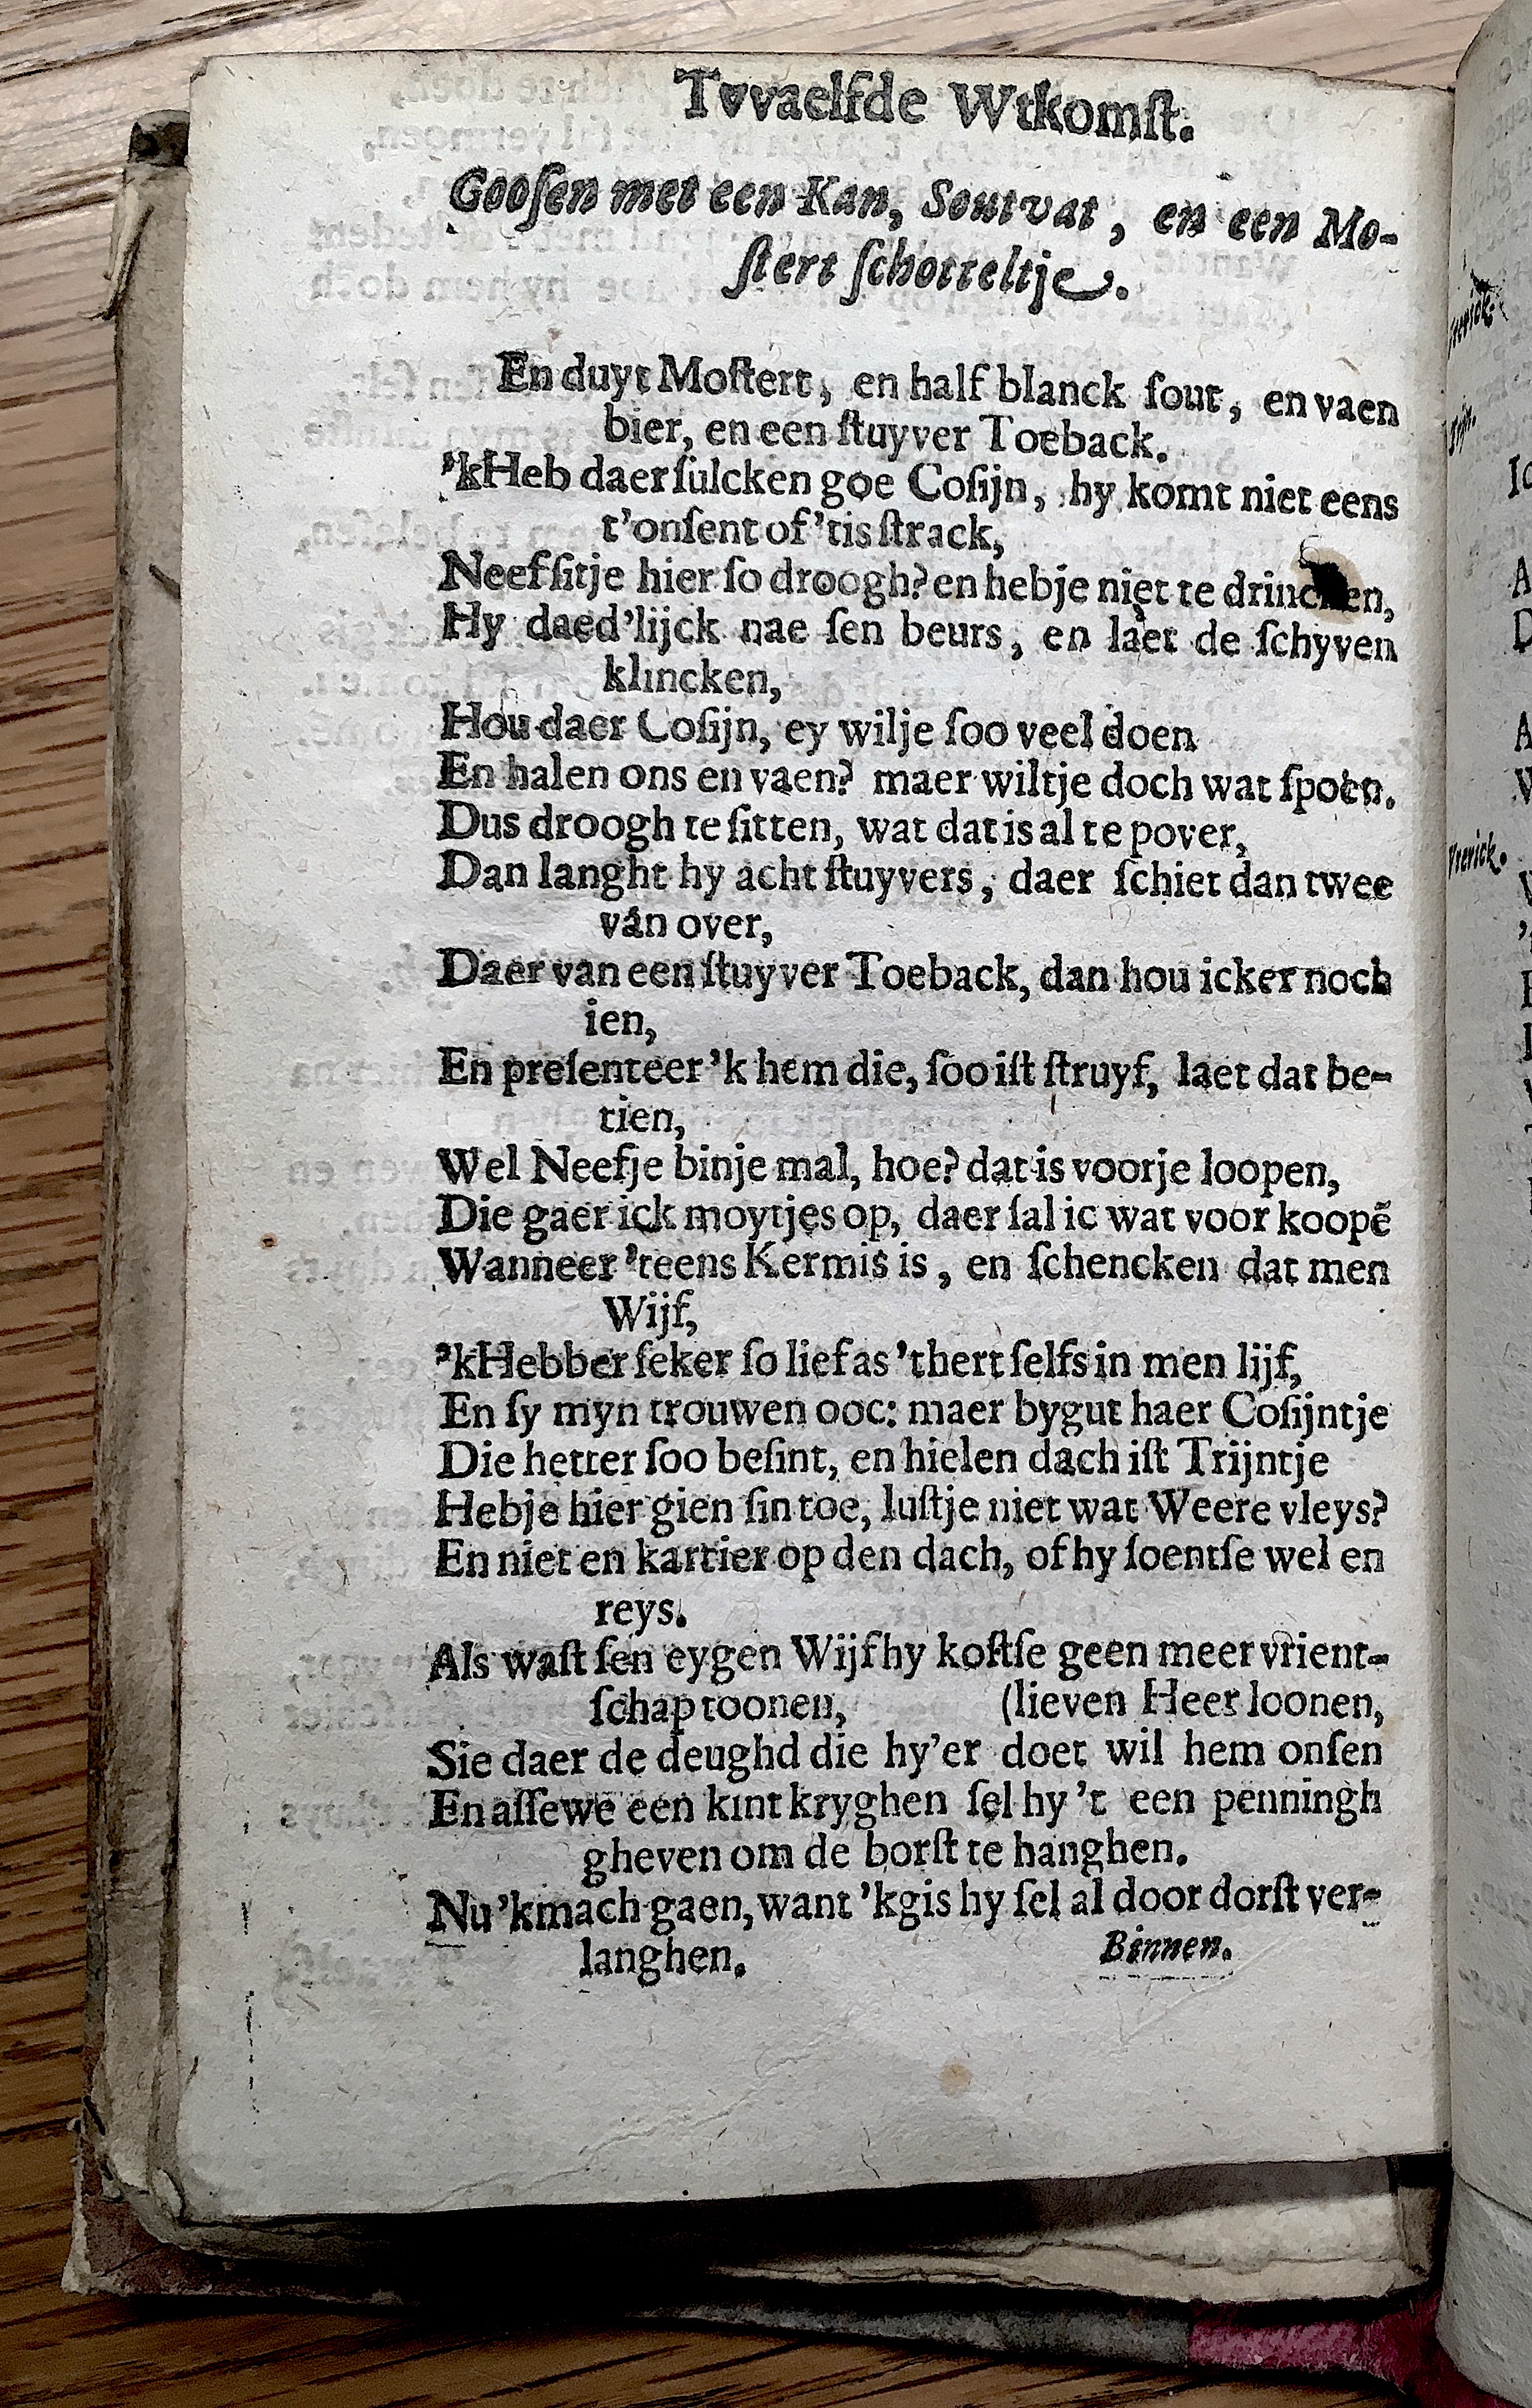 Tvvaelfde Wtkomſt.
Gooſen met een Kan, Soutvat, en een Mo-
ſtert ſchotteltje.
En duyt Moſtert, en half blanck ſout, en vaen
bier, en een ſtuyver Toeback.
'kHeb daer ſulcken goe Coſijn, hy komt niet eens
t'onſent of 'tis ſtrack,
Neef ſitje hier ſo droogh? en hebje niet te drincken,
Hy daed'lijck nae ſen beurs, en laet de ſchyven
klincken,
Hou daer Coſijn, ey wilje ſoo veel doen
En halen ons en vaen? maer wiltje doch wat ſpoen.
Dus droogh te ſitten, wat dat is al te pover,
Dan langht hy acht ſtuyvers, daer ſchiet dan twee
van over,
Daer van een ſtuyver Toeback, dan hou icker noch
ien,
En preſenteer 'k hem die, ſoo iſt ſtruyf, laet dat be-
tien,
Wel Neefje binje mal, hoe? dat is voorje loopen,
Die gaer ick moytjes op, daer ſal ic wat voor koopē
Wanneer 'teens Kermis is, en ſchencken dat men
Wijf,
'kHebber ſeker ſo lief as 'thert ſelfs in men lijf,
En ſy myn trouwen ooc: maer bygut haer Coſijntje
Die hetter ſoo beſint, en hielen dach iſt Trijntje
Hebje hier gien ſin toe, luſtje niet wat Weere vleys?
En niet en kartier op den dach, of hy ſoentſe wel en
reys.
Als waſt ſen eygen Wijf hy koſtſe geen meer vrient-
ſchap toonen, (lieven Heer loonen,
Sie daer de deughd die hy'er doet wil hem onſen
En aſſewe een kint kryghen ſel hy 't een penningh
gheven om de borſt te hanghen.
Nu 'kmach gaen, want 'kgis hy ſel al door dorſt ver-
langhen. Binnen.
Vrerick.